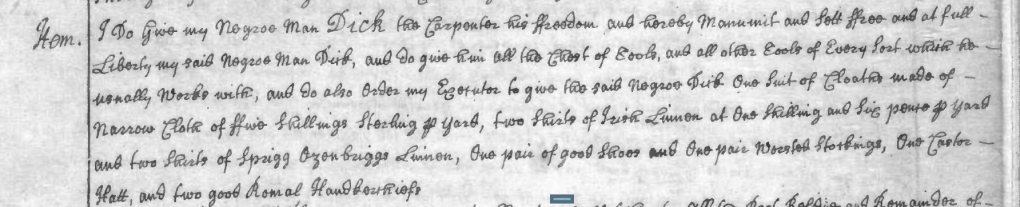 Item. I Do Give my Negroe Man Dick the Carpenter his ffreedom and hereby Manumit and Sett ffree and at full
Liberty my said Negroe Man Dick, and do give him all the Chest of Tools, and all other Tools of Every Sort which he
usually Works with, and do also Order my Executor to give the said Negroe Dick One Suit of Cloaths made of
Narrow Cloth of ffive Shillings Sterling ⅌ Yard, two Shirts of Irish Linnen at One Shilling and Six pence ⅌ Yard
and two Shirts of Sprigg Ozenbriggs Linnen, One pair of good Shoes and One pair Worsted Stockings, One Castor
Hatt, and two good Romal Handkerchiefs
and Remainder of